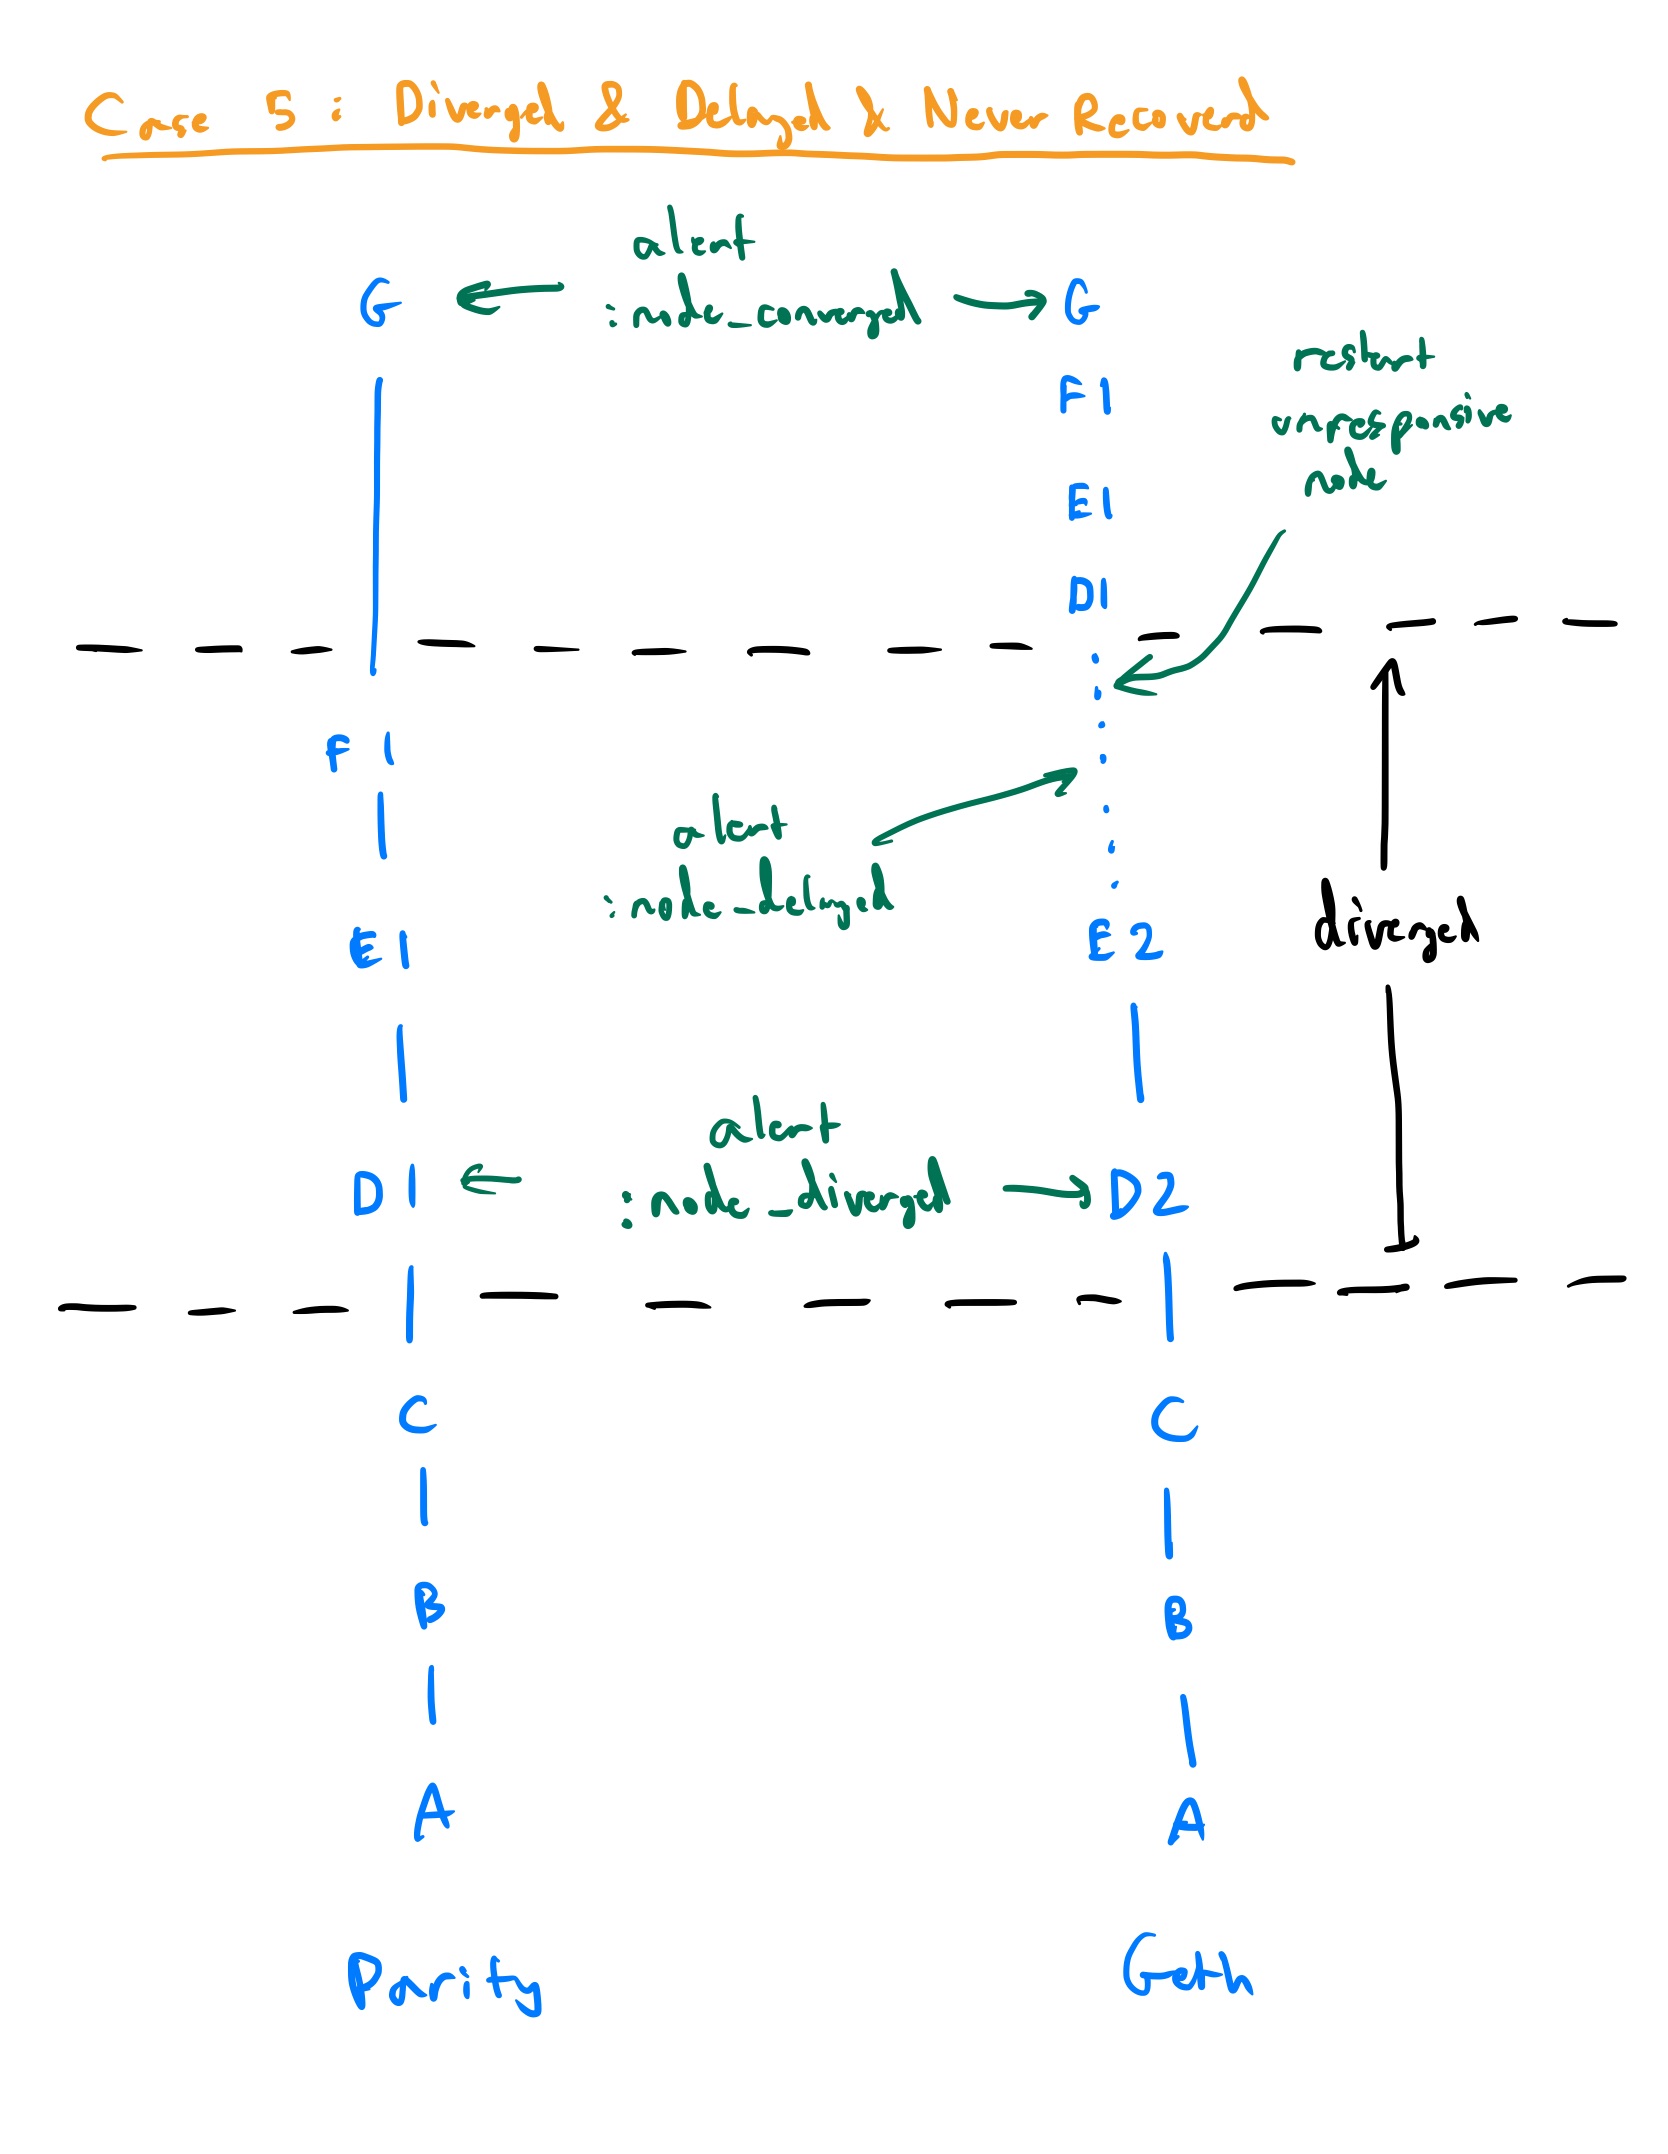 Case 5 : Diverged & Delayed & Never Recoverd
alert
G :node_converged G
restart
F1
unresponsive
node
E1
D1
F 1
alert
:node_delayed
E1 E2
diverged
alert
D1 :node_diverged D2
C C
B B
A A
Parity Geth